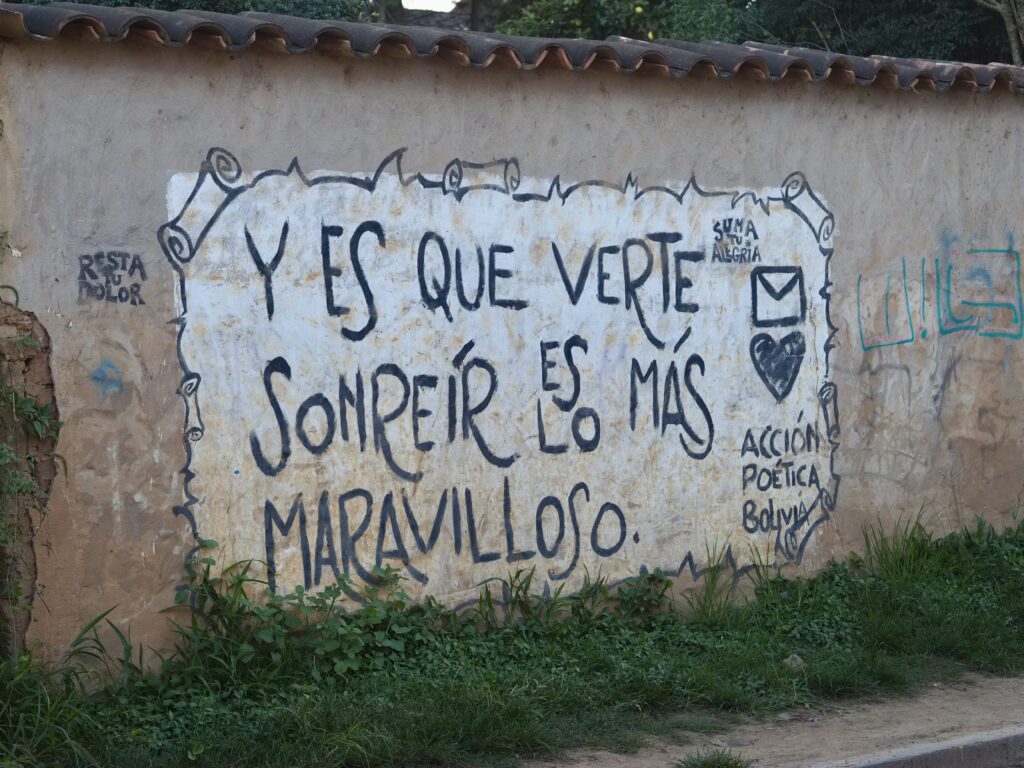 RESTA
TU
DOLOR
Y ES QUE VERTE
SONREÍR ES LO MÁS
MARAVILLOSO.
SUMA
TU
ALEGRÍA
ACCIÓN
POÉTICA
BOLIVIA